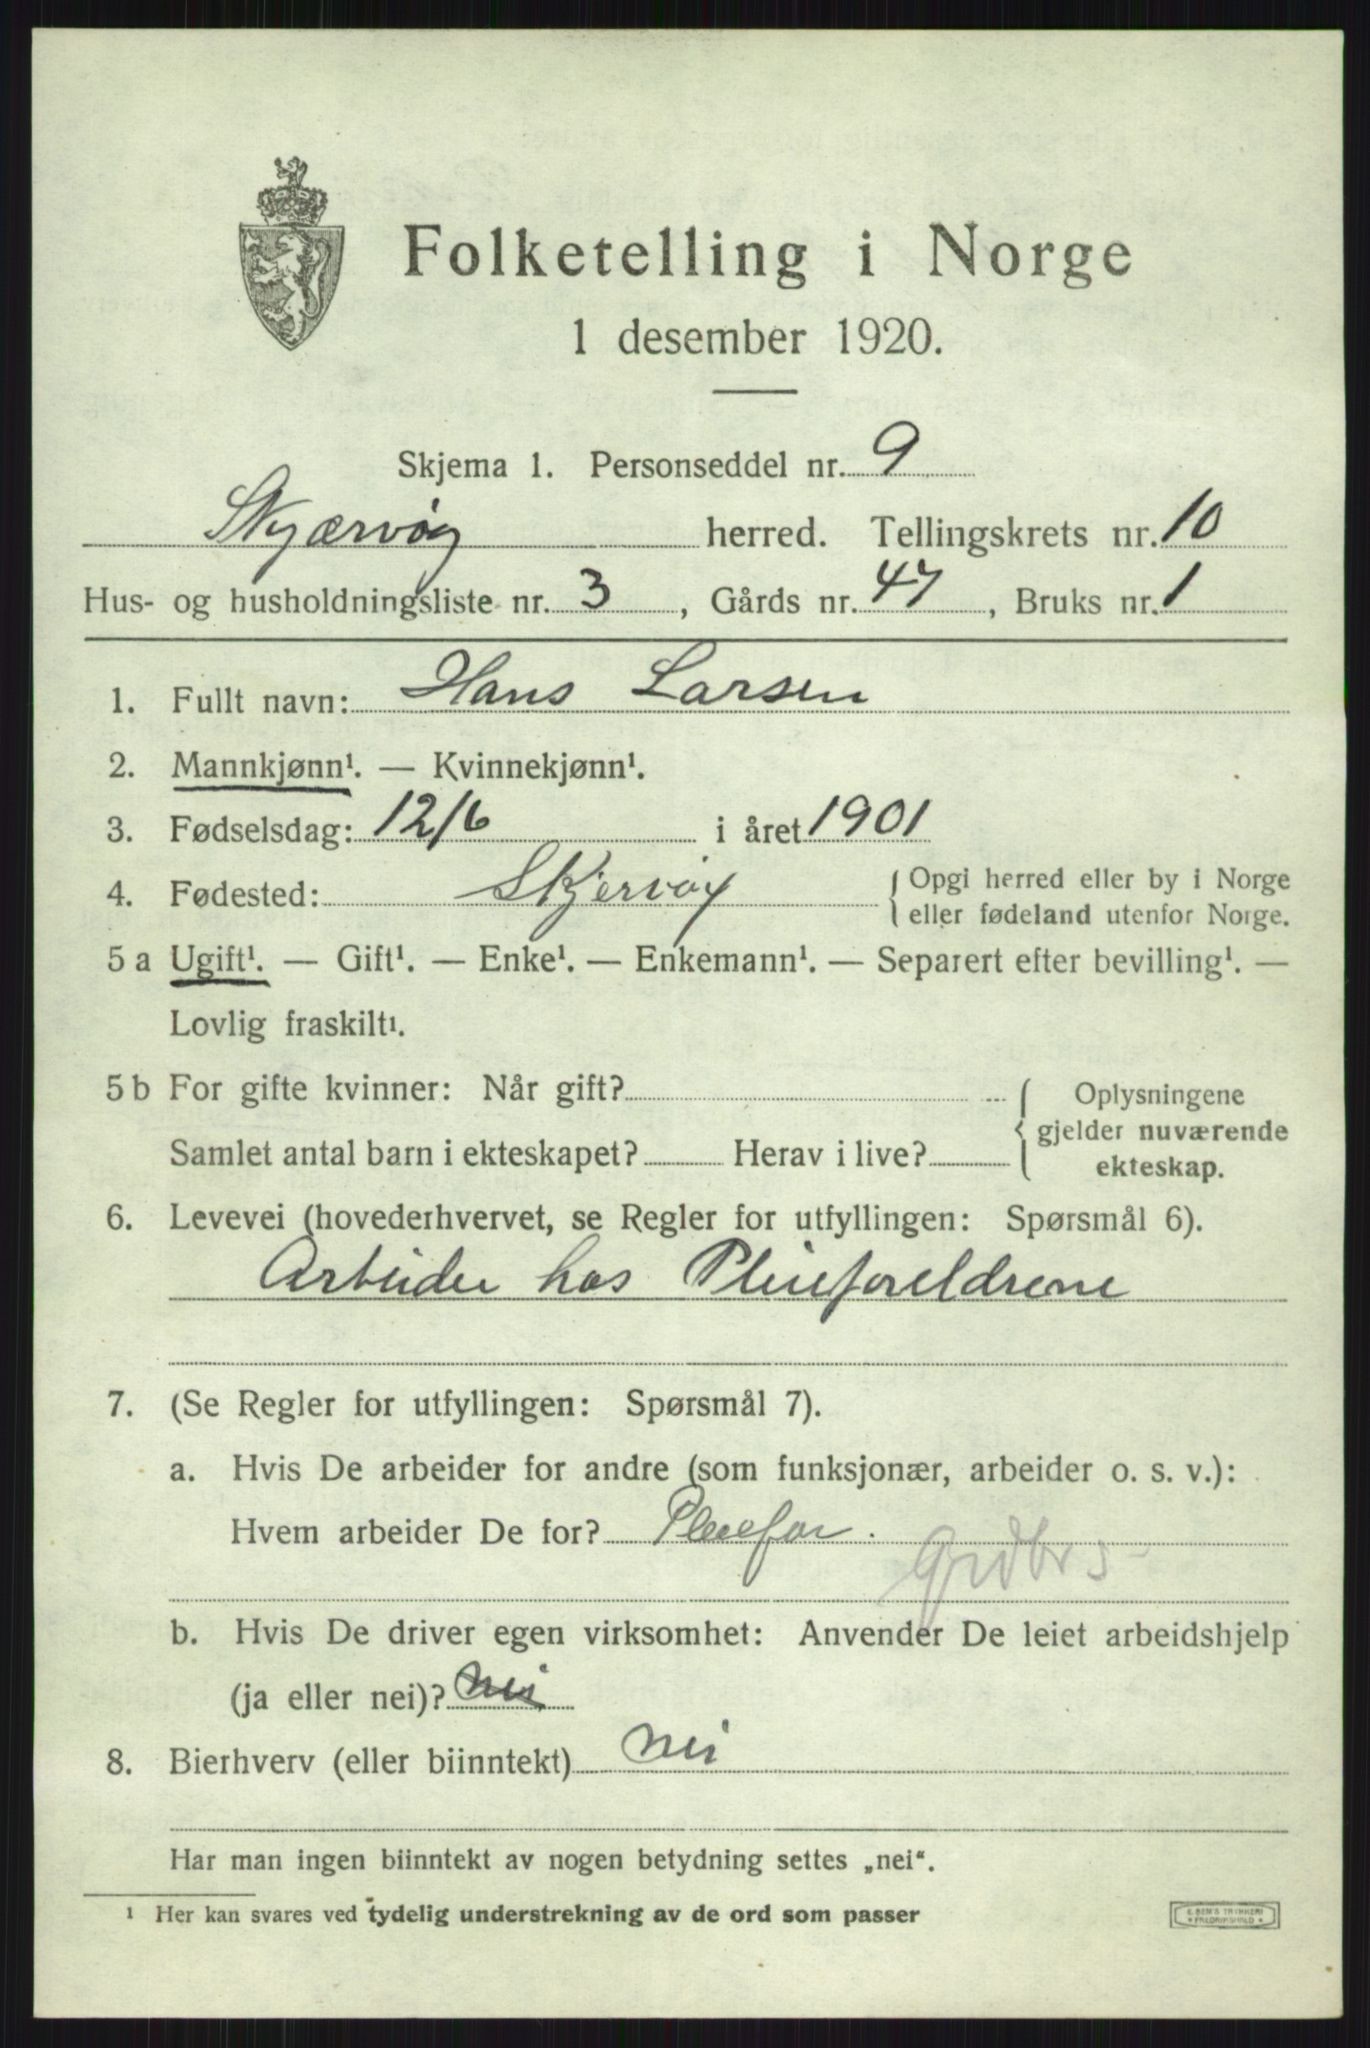 Folketelling i Norge
1 desember 1920.
Skjema 1. Personseddel nr. 9
Skjærvøy herred. Tellingskrets nr. 10
Hus- og husholdningsliste nr. 3, Gårds nr. 47, Bruks nr. 1
1. Fullt navn: Hans Larsen
2. Mannkjønn¹. — Kvinnekjønn¹.
3. Fødselsdag: 12/6 i året 1901
4. Fødested: Skjervøy { Opgi herred eller by i Norge
eller fødeland utenfor Norge.
5 a Ugift¹. — Gift¹. — Enke¹. — Enkemann¹. — Separert efter bevilling¹. —
Lovlig fraskilt¹.
5 b For gifte kvinner: Når gift? { Oplysningene
gjelder nuværende
Samlet antal barn i ekteskapet? Herav i live?
ekteskap.
6. Levevei (hovederhvervet, se Regler for utfyllingen: Spørsmål 6).
Arbeider hos Pleieforeldrene
7. (Se Regler for utfyllingen: Spørsmål 7).
a. Hvis De arbeider for andre (som funksjonær, arbeider o. s. v.):
Hvem arbeider De for? Pleiefar.
Grdbr s
b. Hvis De driver egen virksomhet: Anvender De leiet arbeidshjelp
(ja eller nei)? nei
8. Bierhverv (eller biinntekt) nei
Har man ingen biinntekt av nogen betydning settes „nei“.
¹ Her kan svares ved tydelig understrekning av de ord som passer
E. SEM'S TRYKKERI
* FREDRIKSHALD *